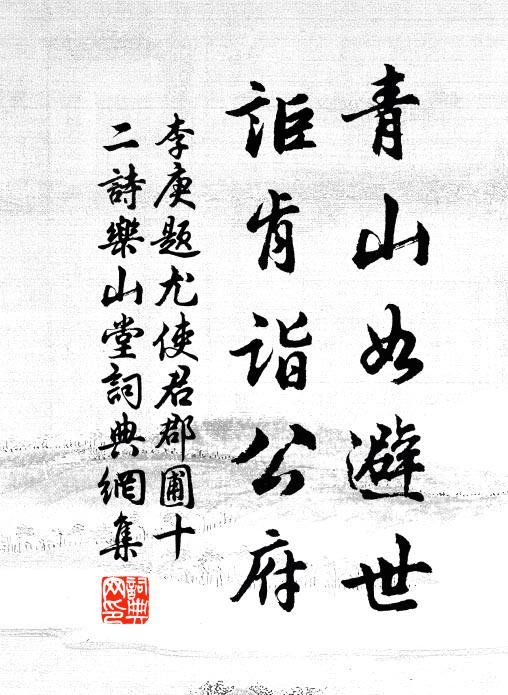 青山如避世
詎肯詣公府
李庚题尤使君郡圃十
二詩樂山堂詞典網集
詞典網印